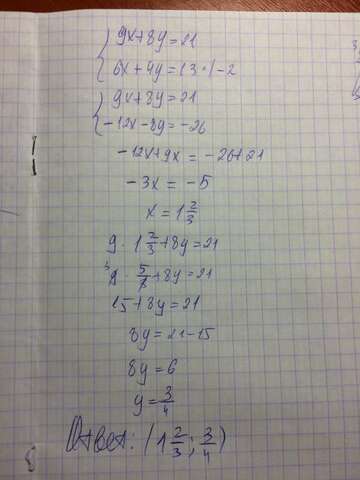 9x+8y=21
6x+4y=13 |·-2
9x+8y=21
-12x-8y=-26
-12x+9x=-26+21
-3x=-5
x=1 2/3
9·1 2/3+8y=21
9·5/3+8y=21
15+8y=21
8y=21-15
8y=6
y=3/4
Ответ: (1 2/3; 3/4)